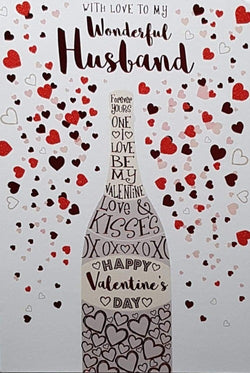 WITH LOVE TO MY
Wonderful
Husband
Forever
YOURS
ONE
I
LOVE
BE
MY
VALENTINE
LOVE &
KISSES
XOXOXO
HAPPY
Valentine's
DAY